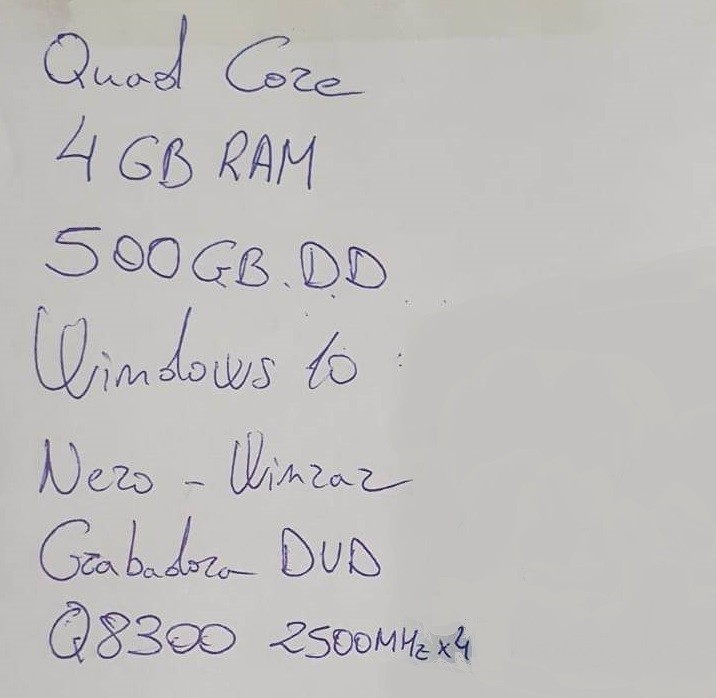 Quad Core
4 GB RAM
500GB.DD
Windows 10
Nero - Winrar
Grabadora DVD
Q8300 2500MHz x4